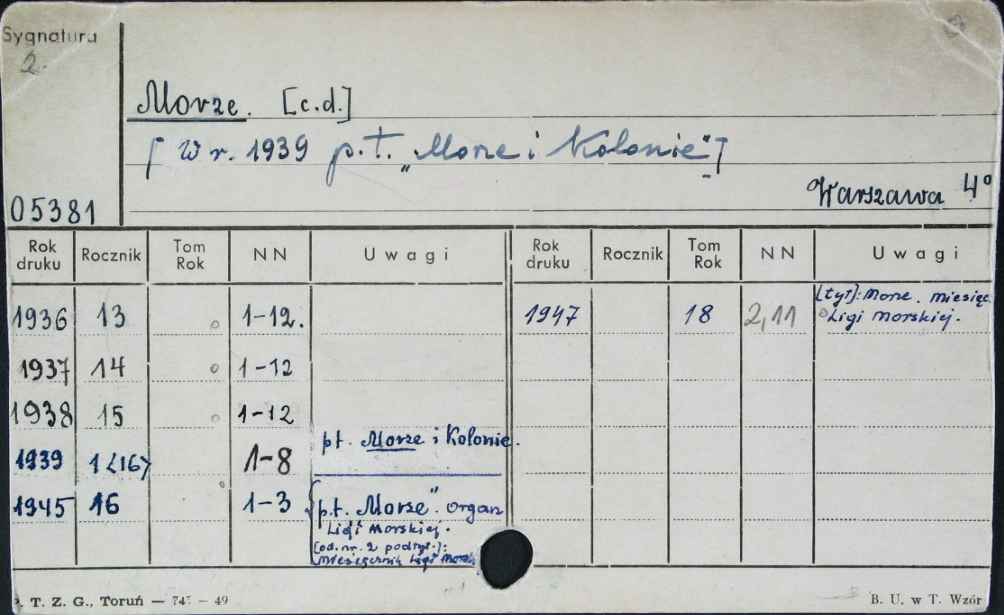 Sygnatura
2.
Morze. [c.d.]
[W r. 1939 p.t. „Morze i Kolonie"]
Warszawa 4°
05381
Rok druku Rocznik Tom Rok NN Uwagi Rok druku Rocznik Tom Rok NN Uwagi
1936 13 1-12. 1947 18 2,11 [tyt]: Morze. miesięc. Ligi Morskiej.
1937 14 1-12
1938 15 1-12
1939 1<16> 1-8 pt. Morze i Kolonie.
1945 16 1-3 p.t. „Morze". organ
Ligi Morskiej.
[od. nr. 2 podtyt.]:
Miesięcznik Ligi Morsk
T. Z. G., Toruń — 74 — 49 B. U. w T. Wzór